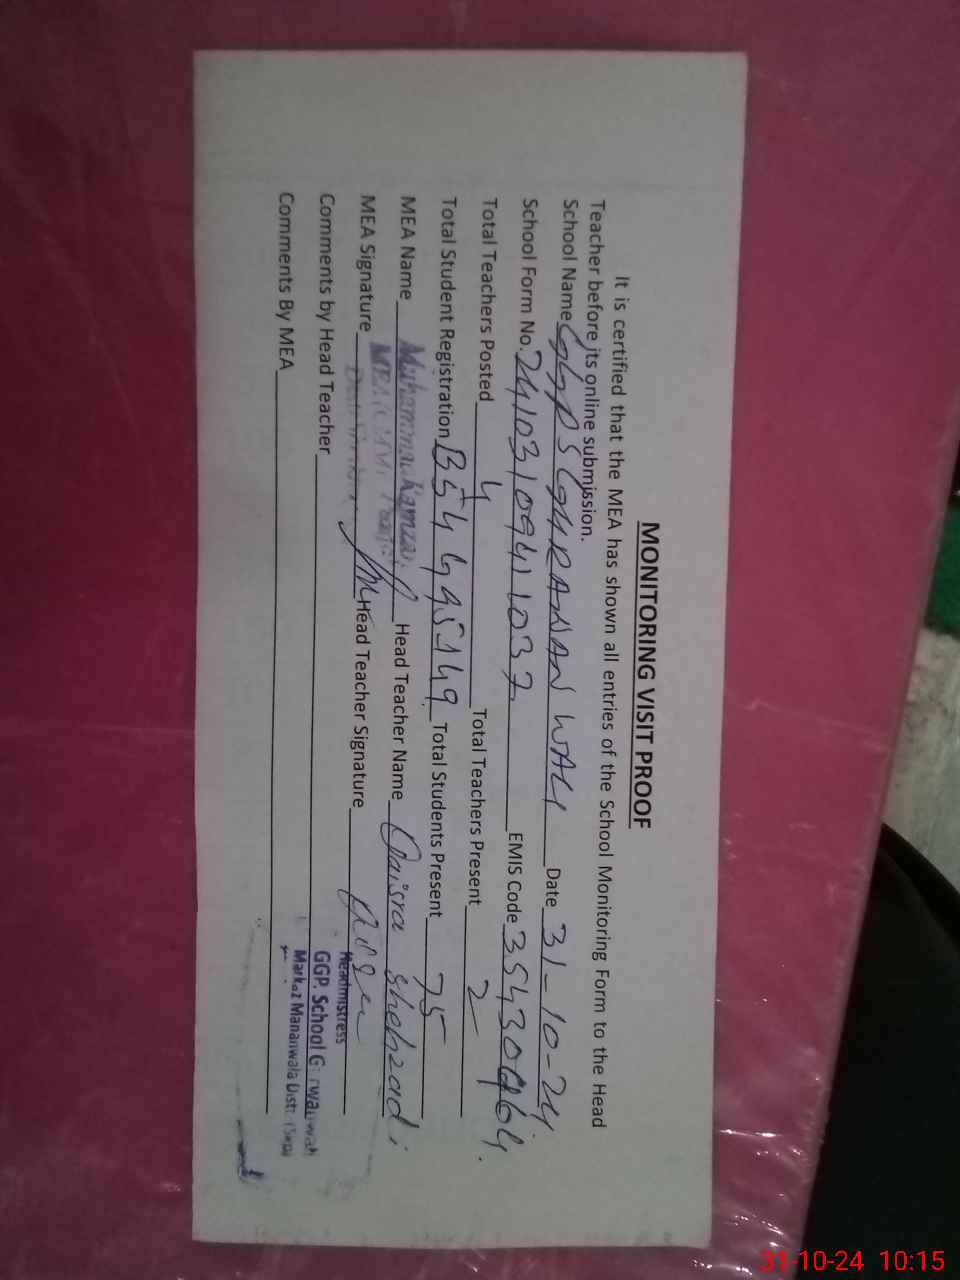 MONITORING VISIT PROOF
It is certified that the MEA has shown all entries of the School Monitoring Form to the Head
Teacher before its online submission.
School Name GGPS GHRANAN WALI Date 31-10-24
School Form No. 2410310941037 EMIS Code 35430964.
Total Teachers Posted 4 Total Teachers Present 2
Total Student Registration Total Students Present 75
MEA Name Muhammad Ramzan Head Teacher Name Qaisra Shehzadi
MEA Signature Head Teacher Signature
Headmistress
Comments by Head Teacher GGP. School
Markaz Mananwala Distt.
Comments By MEA
31-10-24 10:15